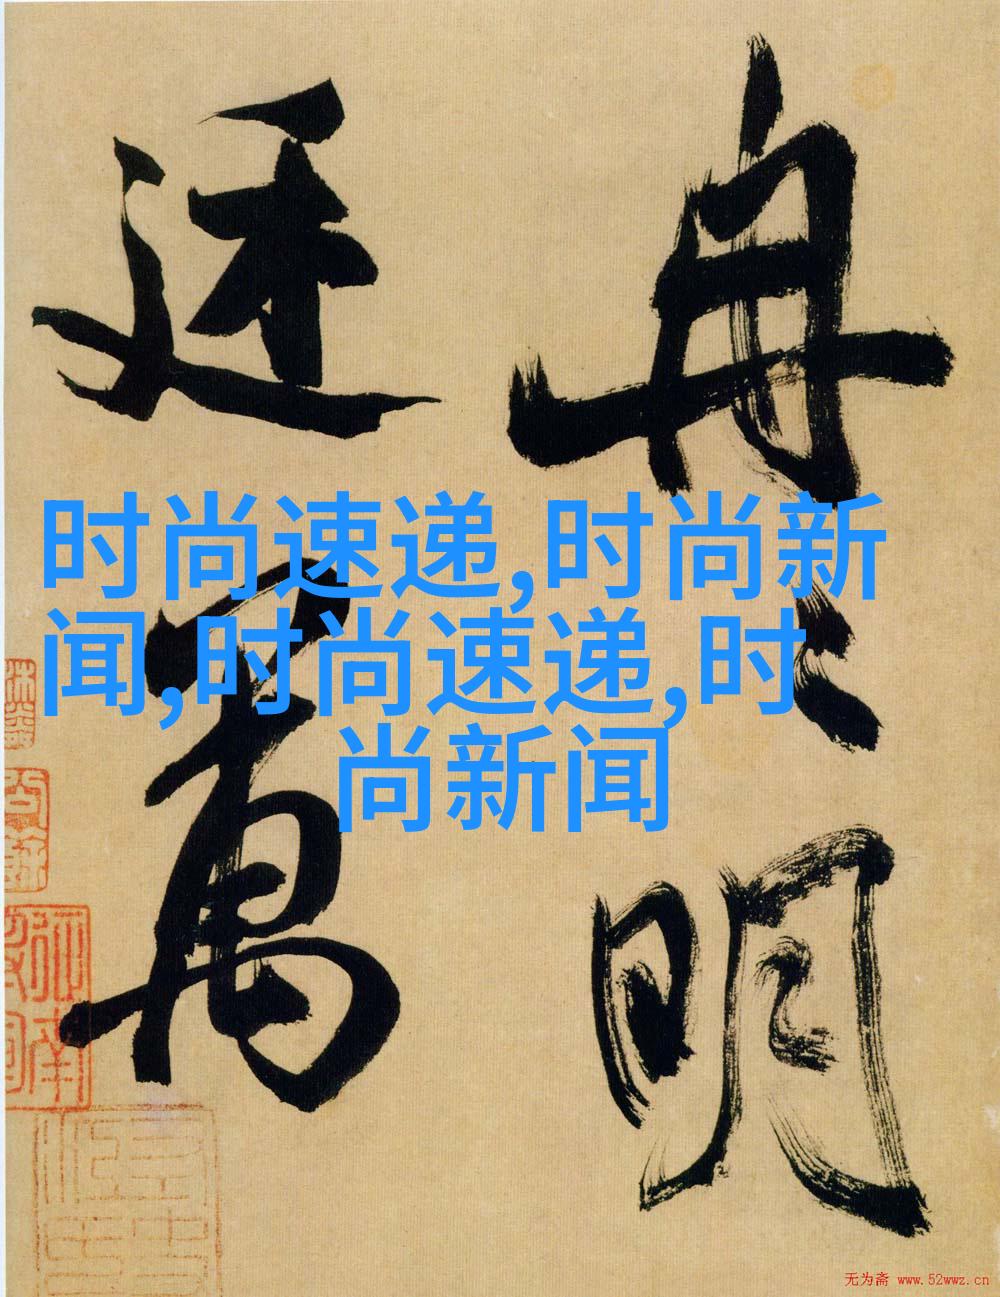 冉〻明
廷萬
时尚速递,时尚新
闻,时尚速递,时
尚新闻
无为斋 www.52wwz.cn